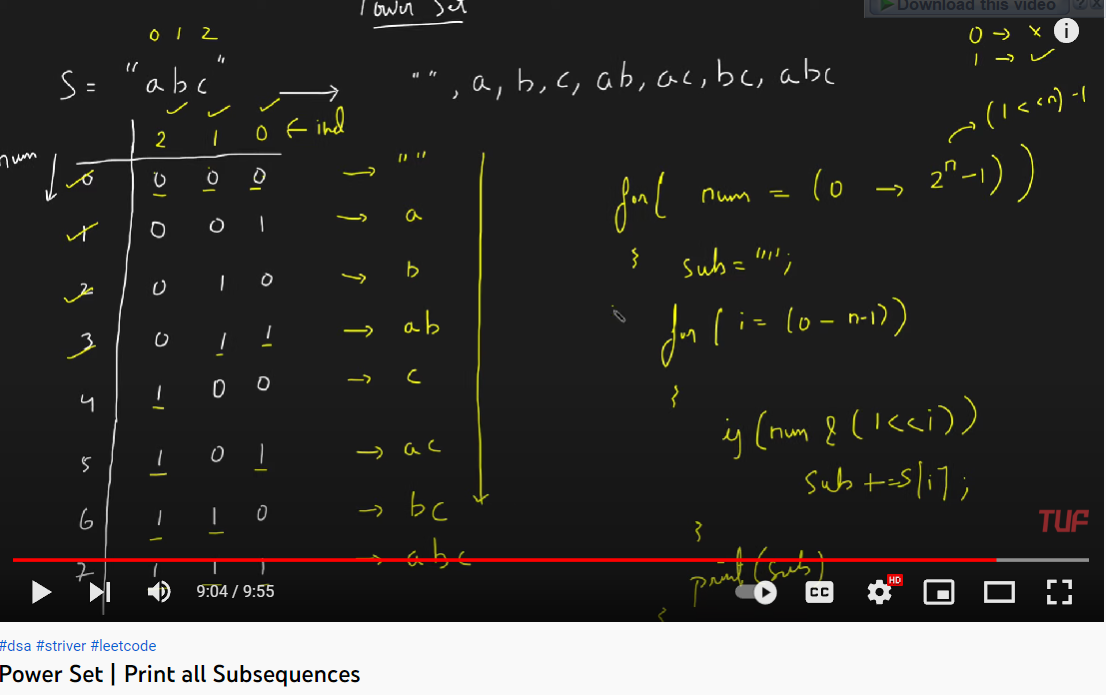 Power Set
Download this video
0 1 2
S = "abc" → "", a, b, c, ab, ac, bc, abc
0 → x
1 → ✓
i
num
2 1 0 ← ind
0 0 0 0 → ""
1 0 0 1 → a
2 0 1 0 → b
3 0 1 1 → ab
4 1 0 0 → c
5 1 0 1 → ac
6 1 1 0 → bc
7 1 1 1 → abc
→ (1<<n)-1
for( num = (0 → 2ⁿ-1))
{ sub = "";
for( i = (0 - n-1))
{
if (num & (1<<i))
sub += S[i];
}
print(sub)
}
TUF
9:04 / 9:55
CC
HD
#dsa #striver #leetcode
Power Set | Print all Subsequences